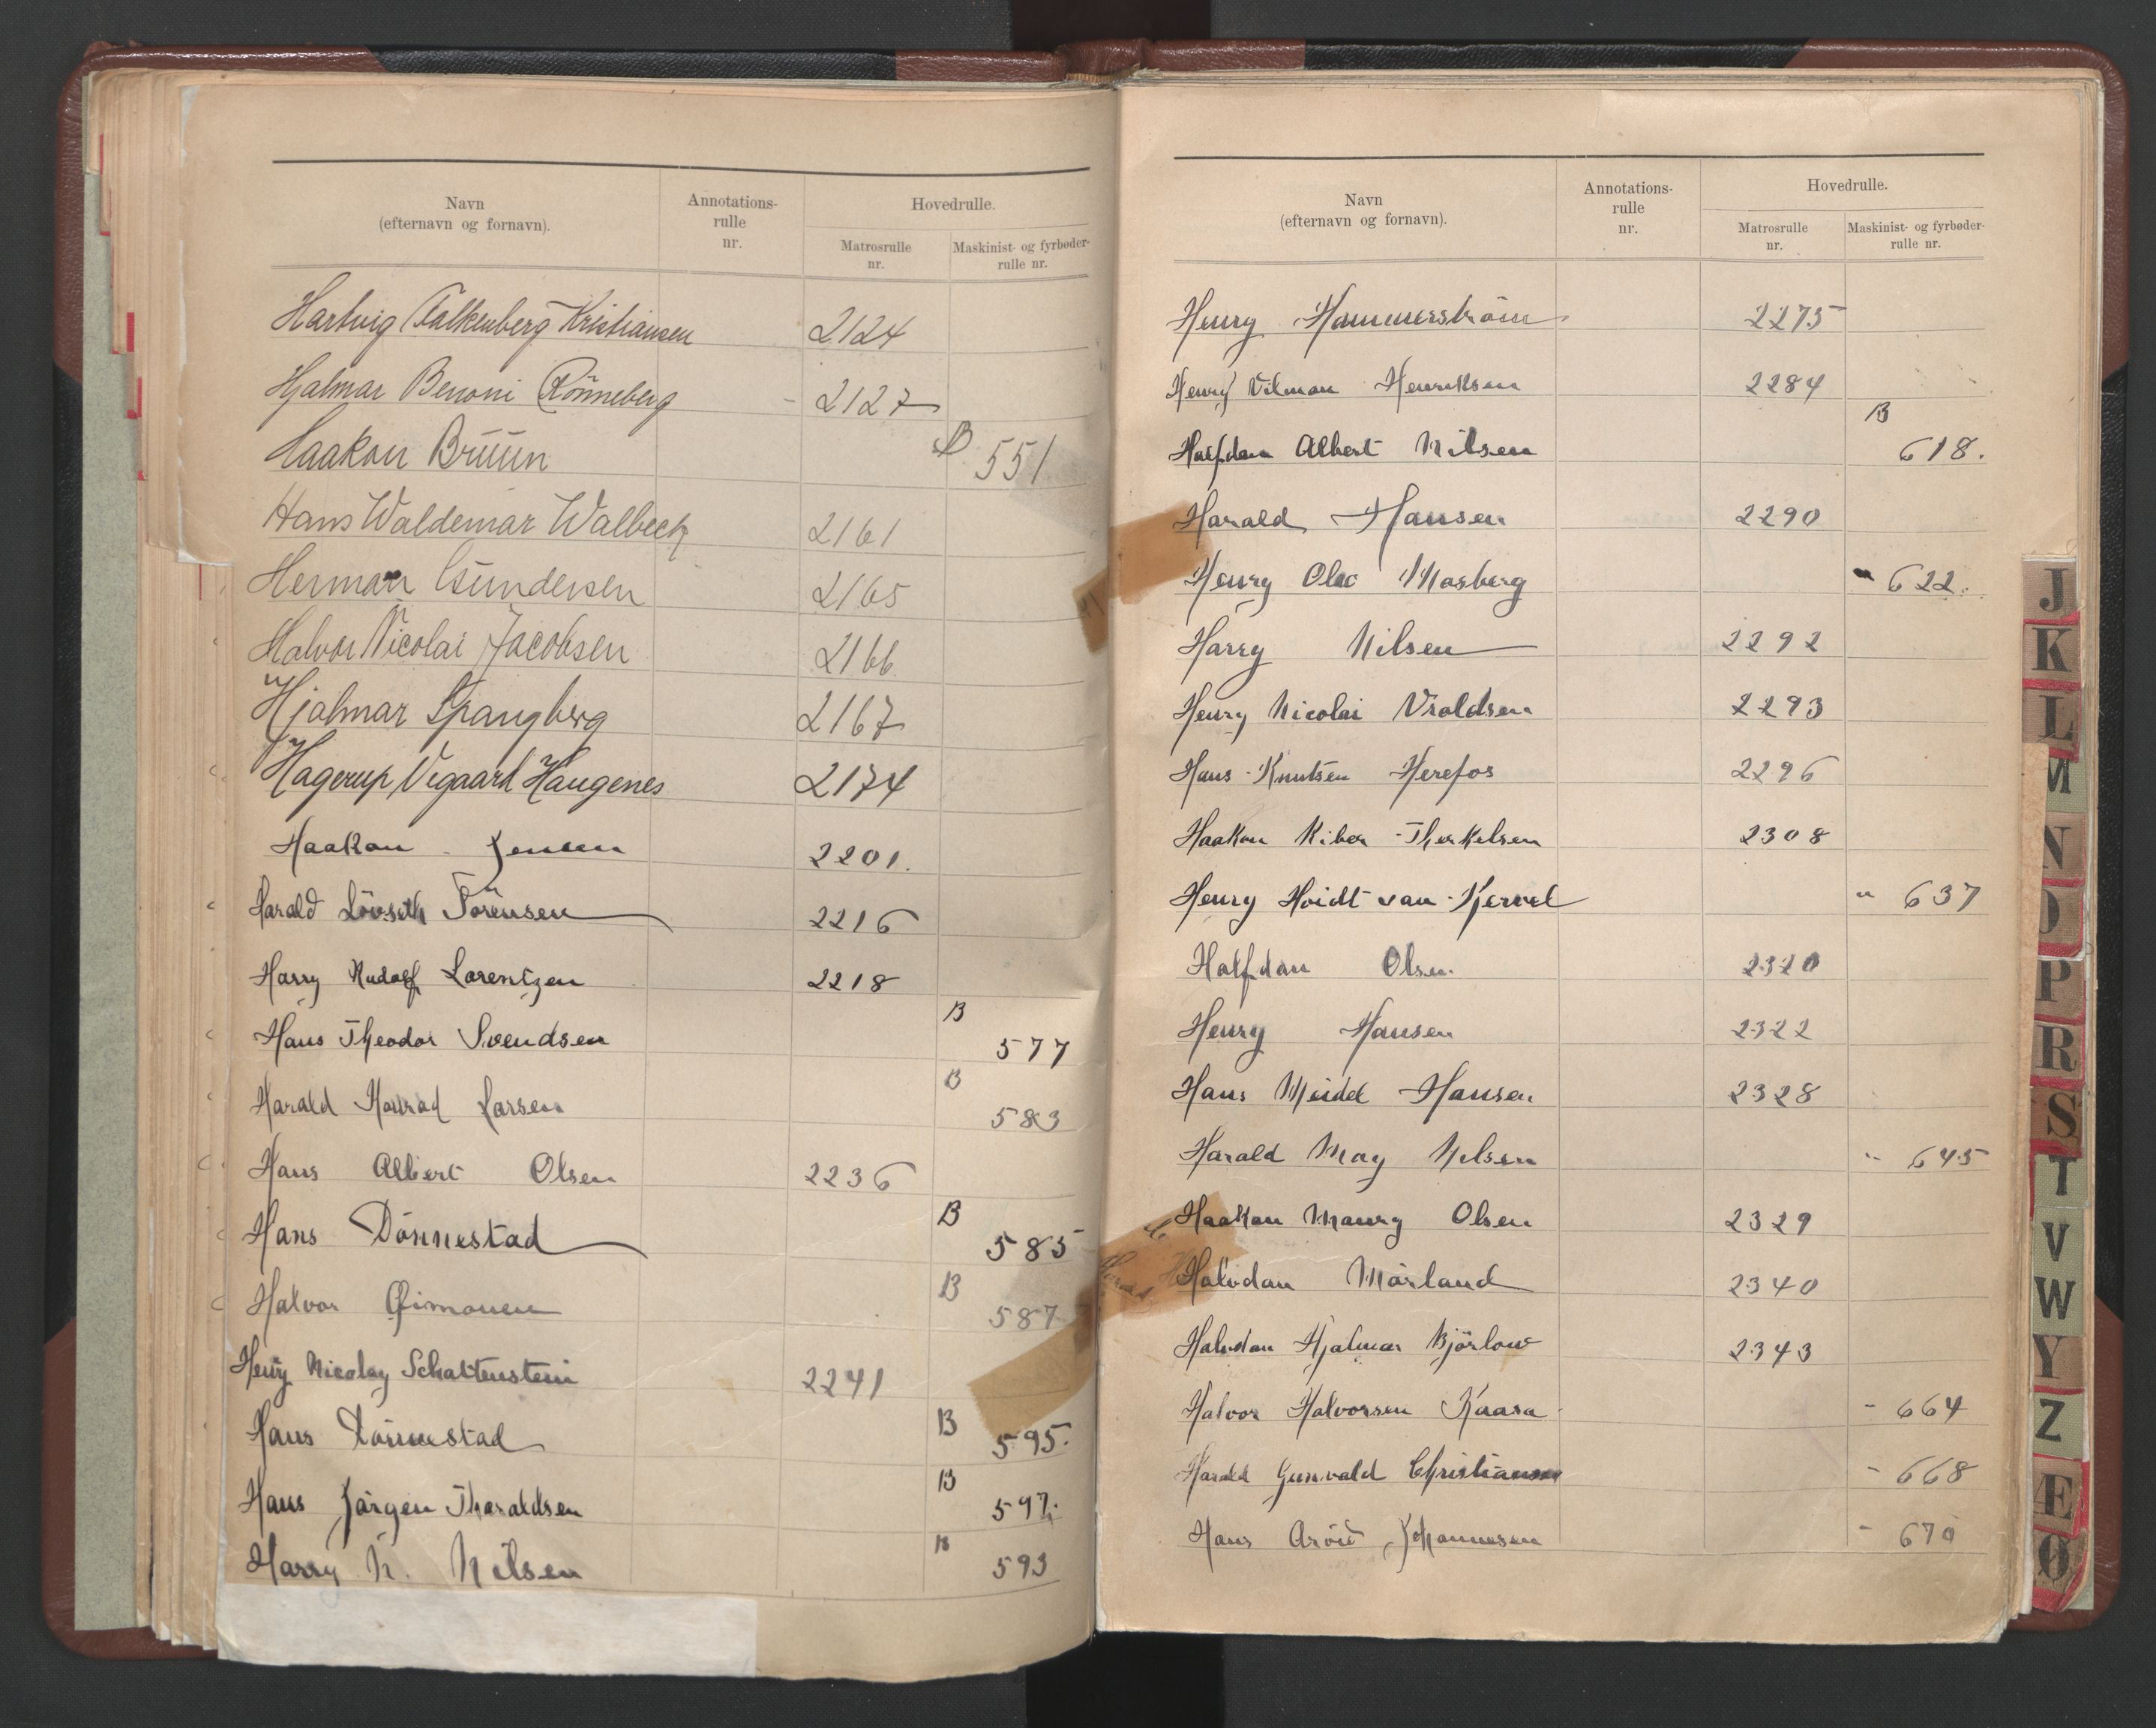 Navn
(efternavn og fornavn).
Annotations-
rulle
nr.
Hovedrulle.
Matrosrulle
nr.
Maskinist- og fyrbøder-
rulle nr.
Hartvig Falkenberg Kristiansen 2124
Hjalmar Benoni Rönneberg - 2127
Haakon Bruun B 551
Hans Waldemar Walbeck 2161
Herman Gundersen 2165
Halvor Nicolai Jacobsen 2166
Hjalmar Spangberg 2167
Hagerup Vegaard Haugenes 2174
Haakon Jensen 2201.
Harald Lövseth Sörensen 2216
Harry Rudolf Lorentzen 2218
Hans Theodor Svendsen B 577
Harald Konrad Larsen B 583
Hans Albert Olsen 2236
Hans Dönnestad B 585
Halvor Simonsen B 587
Henry Nicolay Schattenstein 2241
Hans Dönnestad B 595.
Hans Jörgen Thoraldsen B 597.
Harry N. Nilsen B 593
Navn
(efternavn og fornavn).
Annotations-
rulle
nr.
Hovedrulle.
Matrosrulle
nr.
Maskinist- og fyrbøder-
rulle nr.
Henry Hammerström 2275
Henry Vilman Henriksen 2284
Halfdan Albert Nilsen B 618.
Harald Hansen 2290
Henry Olec Mosberg " 622.
Harry Nilsen 2292
Henry Nicolai Vroldsen 2293
Hans Knutsen Herefos 2296
Haakon Kiber Therkelsen 2308
Henry Hvidt van Kervel " 637
Halfdan Olsen 2320
Henry Hansen 2322
Hans Meidel Hansen 2328
Harald May Nilsen " 645
Haakon Maury Olsen 2329
Halvdan Mörland 2340
Halvdan Hjalmar Björlow 2343
Halvor Halvorsen Kaasa - 664
Harald Gunvald Christiansen - 668
Hans Arvid Johannesen - 670
J
K
L
M
N
O
P
R
S
T
V
W
Y
Z
Æ
Ø